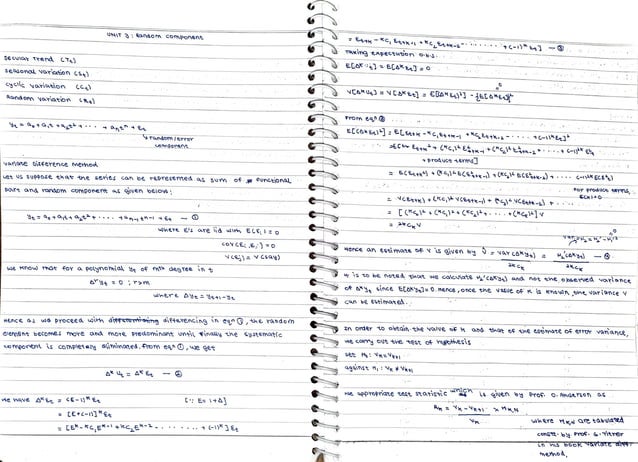 UNIT 3 : Random component
secular trend (Tt)
seasonal variation (St)
cyclic variation (Ct)
Random variation (Rt)
yt = a0 + a1t + a2t² + ... + antⁿ + εt
↳ random/error component
variate difference method
Let us suppose that the series can be represented as sum of functional
part and random component as given below:
yt = a0 + a1t + a2t² + ... + εt — ①
where εi's are iid with E(εi) = 0
cov(εi, εj) = 0
v(εi) = v (say)
we know that for a polynomial yt of mth degree in t
Δʳyt = 0 ; r>m
where Δyt = yt+1 - yt
Hence as we proceed with differencing in eqⁿ ①, the random
element becomes more and more predominant until finally the systematic
component is completely eliminated. From eqⁿ ①, we get
Δᴷ ut = Δᴷ εt — ②
we have Δᴷ εt = (E-1)ᴷ εt [∵ E = 1+Δ]
= [E+(-1)]ᴷ εt
= [Eᴷ - ᴷC1 Eᴷ⁻¹ + ᴷC2 Eᴷ⁻² - ... + (-1)ᴷ] εt
= εt+k - ᴷC1 εt+k-1 + ᴷC2 εt+k-2 - ... + (-1)ᴷ εt] — ③
Taking expectation o.b.s.
E[Δᴷ ut] = E[Δᴷ εt] = 0
V[Δᴷ ut] = V[Δᴷ εt] = E[(Δᴷ εt)²] - {E[Δᴷ εt]}² 0
From eqⁿ ③
E[(Δᴷ εt)²] = E[εt+k - ᴷC1 εt+k-1 + ᴷC2 εt+k-2 - ... + (-1)ᴷ εt]²
= E[εt+k² + (ᴷC1)² ε²t+k-1 + (ᴷC2)² ε²t+k-2 + ... + (-1)²ᴷ ε²t
+ product terms]
= E(εt+k²) + (ᴷC1)² E(ε²t+k-1) + (ᴷC2)² E(ε²t+k-2) + ... (-1)²ᴷ E(εt²)
for product terms,
= V(εt+k) + (ᴷC1)² V(εt+k-1) + (ᴷC2)² V(εt+k-2) + ...
= [(ᴷC0)² + (ᴷC1)² + (ᴷC2)² + ... + (ᴷCK)²] v
= ²ᴷCK v
Hence an estimate of v is given by v̂ = var(Δᴷyt) / ²ᴷCK = μ2'(Δᴷyt) / ²ᴷCK — ④
It is to be noted that we calculate μ2'(Δᴷyt) and not the observed variance
of Δᴷyt since E(Δᴷyt) = 0. Hence, once the value of K is known, the variance v
can be estimated.
In order to obtain the value of K and that of the estimate of error variance,
we carry out the test of hypothesis
Let H0 : VK = VK+1
against H1 : VK ≠ VK+1
The appropriate test statistic which is given by Prof. O. Anderson as
RK = VK - VK+1 / VK × HK,N
where HK,N are tabulated
by Prof. G. Tintner
in his book variate diff.
method.